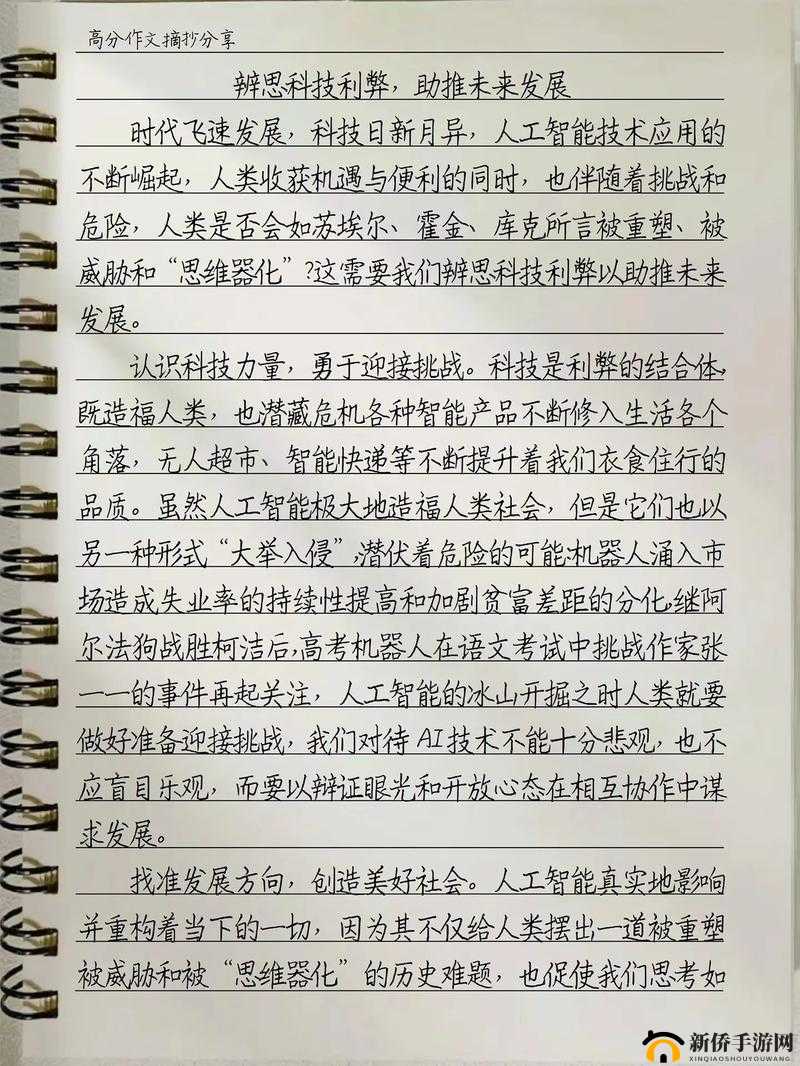 高分作文摘抄分享
辨思科技利弊，助推未来发展
时代飞速发展，科技日新月异，人工智能技术应用的
不断崛起，人类收获机遇与便利的同时，也伴随着挑战和
危险，人类是否会如苏埃尔、霍金、库克所言被重塑、被
威胁和“思维器化”?这需要我们辨思科技利弊以助推未来
发展。
认识科技力量，勇于迎接挑战。科技是利弊的结合体，
既造福人类，也潜藏危机各种智能产品不断修入生活各个
角落，无人超市、智能快递等不断提升着我们衣食住行的
品质。虽然人工智能极大地造福人类社会，但是它们也以
另一种形式“大举入侵”，潜伏着危险的可能：机器人涌入市
场造成失业率的持续性提高和加剧贫富差距的分化，继阿
尔法狗战胜柯洁后，高考机器人在语文考试中挑战作家张
一一的事件再起关注，人工智能的冰山开掘之时人类就要
做好准备迎接挑战，我们对待AI技术不能十分悲观，也不
应盲目乐观，而要以辩证眼光和开放心态在相互协作中谋
求发展。
找准发展方向，创造美好社会。人工智能真实地影响
并重构着当下的一切，因为其不仅给人类摆出一道被重塑
被威胁和被“思维器化”的历史难题，也促使我们思考如
新侨手游网
XINQIAOSHOUYOUWANG